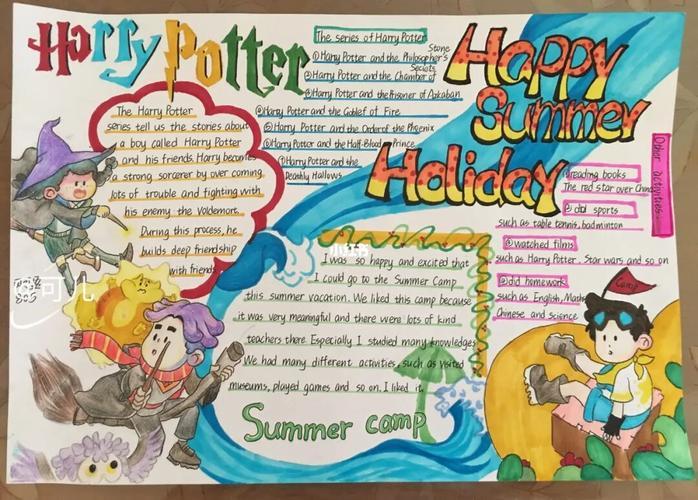 Harry Potter
The Harry Potter
series tell us the stories about
a boy called Harry Potter
and his friends. Harry becomes
a strong sorcerer by over coming
lots of trouble and fighting with
his enemy the Voldemort.
During this process, he
builds deep friendship
with friends
The series of Harry Potter
①Harry Potter and the Philosopher's Stone
②Harry Potter and the Chamber of Secrets
③Harry Potter and the Prisoner of Azkaban
④Harry Potter and the Goblet of Fire
⑤Harry Potter and the Order of the Phoenix
⑥Harry Potter and the Half-Blood Prince
⑦Harry Potter and the
Deathly Hallows
Happy
Summer
Holiday
Other activities
①reading books
The red star over China
②did sports
such as table tennis, badminton
③watched films
such as Harry Potter. Star wars and so on
④did homework
such as English, Maths
Chinese and science
小红书
I was so happy and excited that
I could go to the Summer Camp
this summer vacation. We liked this camp because
it was very meaningful and there were lots of kind
teachers there. Especially I studied many knowledges
We had many different activities, such as visited
museums, played games and so on. I liked it.
Summer camp
Camp
可儿